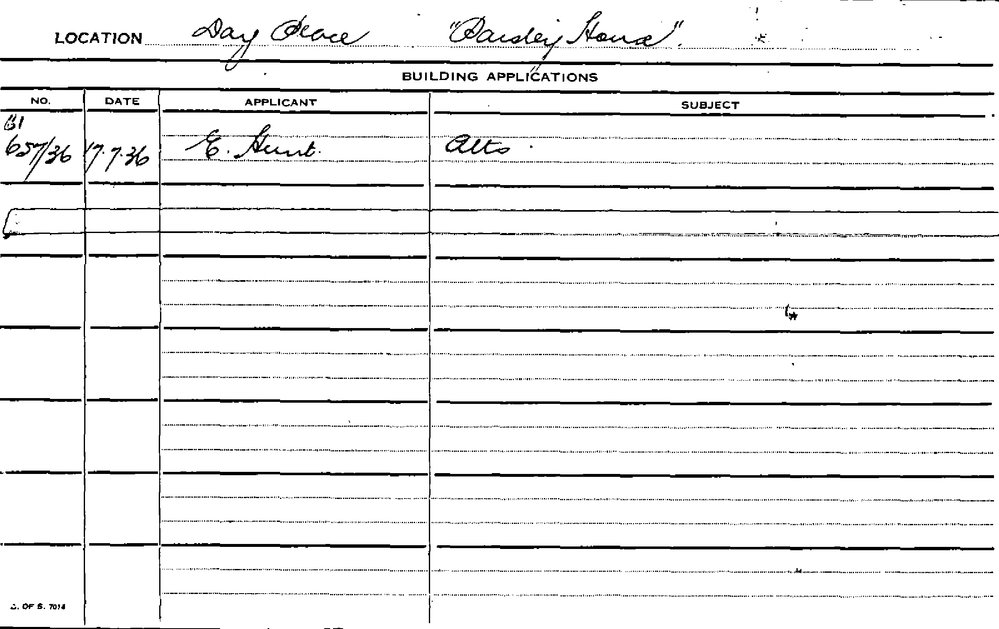 LOCATION Day Place "Paisley House".
BUILDING APPLICATIONS
NO. DATE APPLICANT SUBJECT
B1
657/36 17.7.36 E. Hunt. Alts.
OF S. 7014